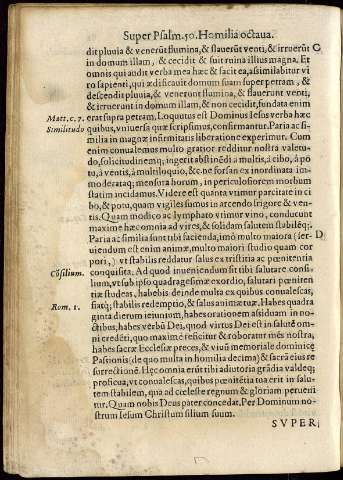 Super Psalm.50. Homilia octaua.
dit pluuia & venerūt flumina, & flauerūt venti, & irruerūt C
in domum illam, & cecidit & fuit ruina illius magna. Et
omnis qui audit verba mea hæc & facit ea, assimilabitur vi
ro sapienti, qui ædificauit domum suam super petram, &
descēdit pluuia, & venerunt flumina, & flauerunt venti,
& irruerunt in domum illam, & non cecidit, fundata enim
Matt. c. 7. erat supra petram. Loquutus est Dominus Iesus verba hæc
Similitudo quibus, vniuersa quæ scripsimus, confirmantur. Paria ac si-
milia in magnæ infirmitatis liberatione experimur. Cum
enim conualemus multo gratior redditur nostra valetu-
do, solicitudinemq; ingerit abstinēdi à multis, à cibo, à po
tu, à ventis, à multiloquio, & c. ne forsan ex inordinata im-
moderataq; mensura horum, in periculosiorem morbum
statim incidamus. Videre est quanta vtimur parcitate in ci
bo, & potu, quam vigiles sumus in arcendo frigore & ven-
tis. Quam modico ac lymphato vtimor vino, conducunt
maxime hæc omnia ad vires, & solidam salutem stabilēq;.
Paria ac similia sunt tibi facienda, imò multo maiora (ser- D
uiendum est enim animæ, multo maiori studio quam cor
pori,) vt stabilis reddatur salus ex tristitia ac pœnitentia
Cōsilium. conquisita. Ad quod inueniendum sit tibi salutare consi-
lium, vt sub ipso quadragesimæ exordio, salutari pœniten
tiæ studeas, habebis deinde multa ex quibus conualescas,
Rom. 1. fiatq; stabilis redemptio, & salus animæ tuæ. Habes quadra
ginta dierum ieiunium, habes orationem assiduam in no-
ctibus, habes verbū Dei, quod virtus Dei est in salutē om-
ni credēti, quo maximè reficitur & roboratur mēs nostra,
habes sacræ Ecclesiæ preces, & viuū memoriale dominicę
Passionis (de quo multa in homilia decima) & sacrā eius re
surrectionē. Hęc omnia erūt tibi adiutoria grādia valdeq;
proficua, vt conualescas, quibus pœnitētia tua erit in salu-
tem stabilem, qua ad cæleste regnum & gloriam perueni
tur. Quam nobis Deus pater concedat. Per Dominum no-
strum Iesum Christum filium suum.
SVPER;